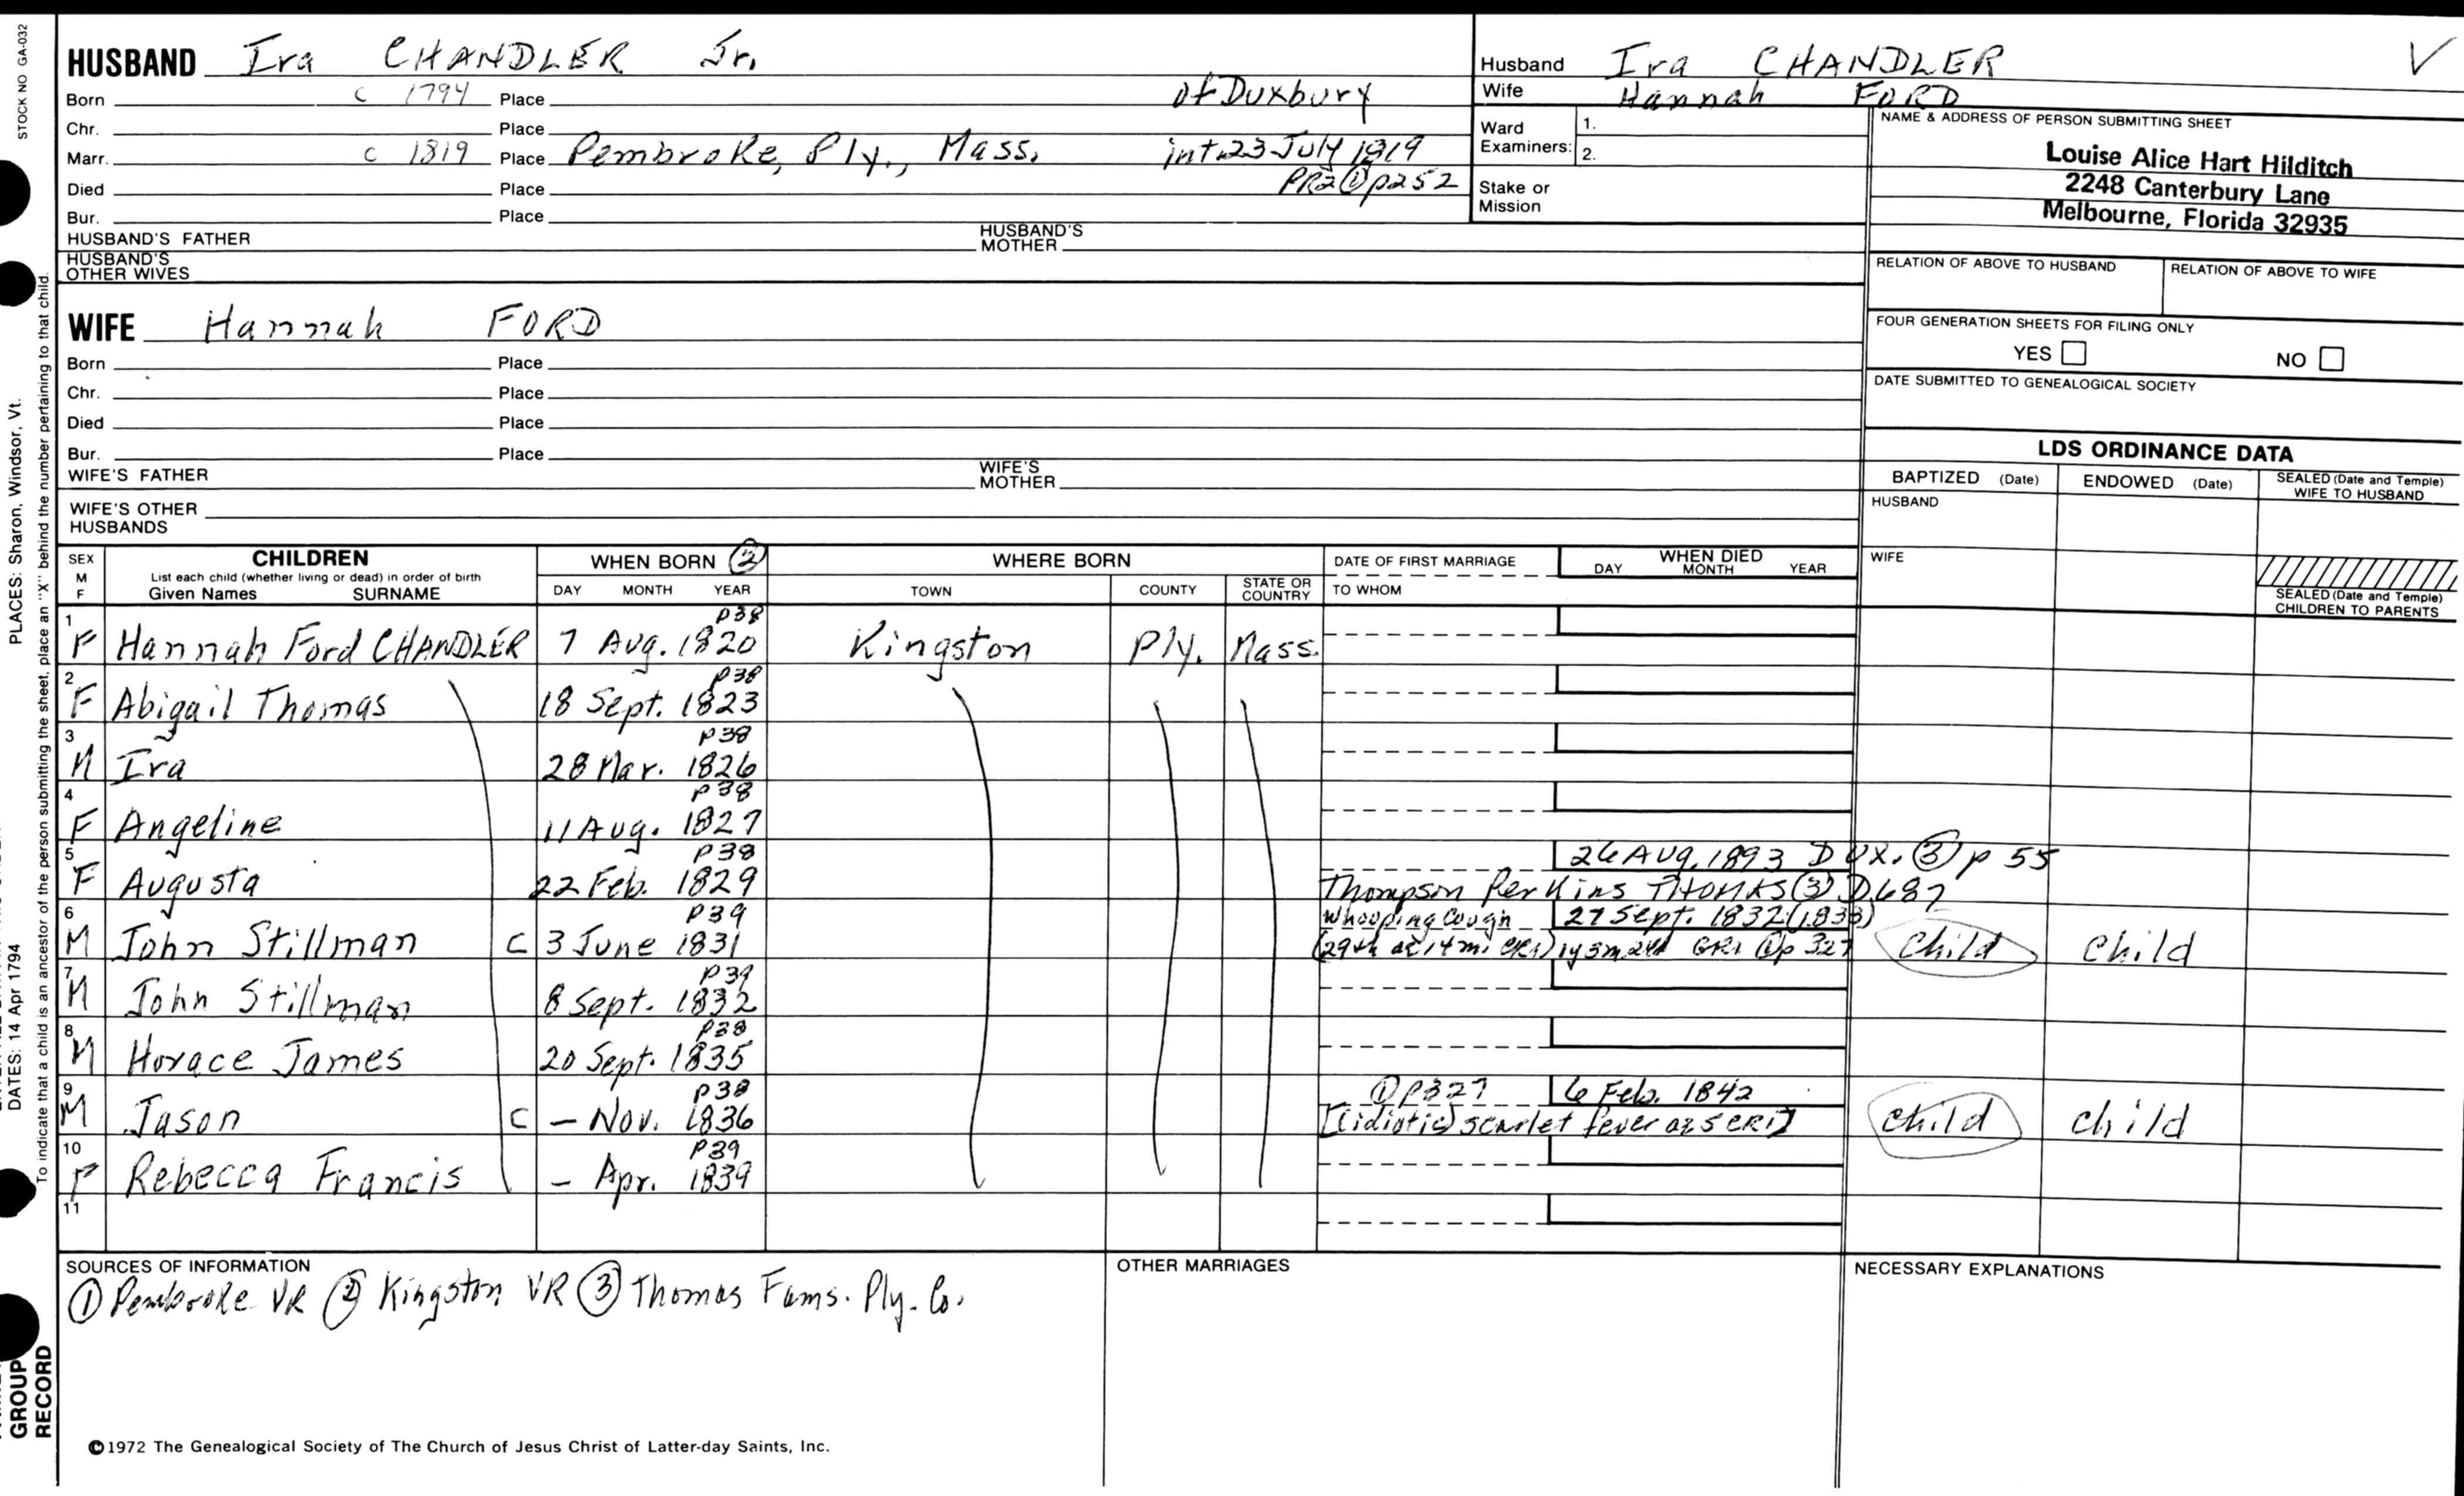 STOCK NO GA-032
PLACES: Sharon, Windsor, Vt.
DATES: 14 Apr 1794
To indicate that a child is an ancestor of the person submitting the sheet, place an "X" behind the number pertaining to that child.
GROUP
RECORD
HUSBAND Ira CHANDLER Jr.
Born c 1794 Place of Duxbury
Chr. Place
Marr. c 1819 Place Pembroke, Ply., Mass. int. 23 July 1819
Died Place PR2 ① p252
Bur. Place
HUSBAND'S FATHER HUSBAND'S MOTHER
HUSBAND'S OTHER WIVES
Husband Ira CHANDLER V
Wife Hannah FORD
Ward Examiners: 1.
2.
Stake or Mission
NAME & ADDRESS OF PERSON SUBMITTING SHEET
Louise Alice Hart Hilditch
2248 Canterbury Lane
Melbourne, Florida 32935
RELATION OF ABOVE TO HUSBAND RELATION OF ABOVE TO WIFE
FOUR GENERATION SHEETS FOR FILING ONLY
YES NO
DATE SUBMITTED TO GENEALOGICAL SOCIETY
WIFE Hannah FORD
Born Place
Chr. Place
Died Place
Bur. Place
WIFE'S FATHER WIFE'S MOTHER
WIFE'S OTHER HUSBANDS
LDS ORDINANCE DATA
BAPTIZED (Date) ENDOWED (Date) SEALED (Date and Temple) WIFE TO HUSBAND
HUSBAND
WIFE
SEALED (Date and Temple) CHILDREN TO PARENTS
SEX M F CHILDREN WHEN BORN ② WHERE BORN DATE OF FIRST MARRIAGE WHEN DIED
List each child (whether living or dead) in order of birth
Given Names SURNAME DAY MONTH YEAR TOWN COUNTY STATE OR COUNTRY TO WHOM DAY MONTH YEAR
1 p38
F Hannah Ford CHANDLER 7 Aug. 1820 Kingston Ply. Mass.
2 p38
F Abigail Thomas 18 Sept. 1823
3 p38
M Ira 28 Mar. 1826
4 p38
F Angeline 11 Aug. 1827
5 p38 26 Aug. 1893 DUX. ③ p 55
F Augusta 22 Feb. 1829 Thompson Perkins THOMAS ③ D687
6 p39 Whooping Cough 27 Sept. 1832 (1833)
M John Stillman C 3 June 1831 (29th ae 14 m. CR1) 1y 3m 24d GR1 ① p 327 Child Child
7 p39
M John Stillman 8 Sept. 1832
8 p38
M Horace James 20 Sept. 1835
9 p38 ① p327 6 Feb. 1842
M Jason C – Nov. 1836 [(idiotic) scarlet fever ae 5 CR1] Child Child
10 p39
F Rebecca Francis – Apr. 1839
11
SOURCES OF INFORMATION
① Pembroke VR ② Kingston VR ③ Thomas Fams. Ply. Co.
OTHER MARRIAGES
NECESSARY EXPLANATIONS
©1972 The Genealogical Society of The Church of Jesus Christ of Latter-day Saints, Inc.